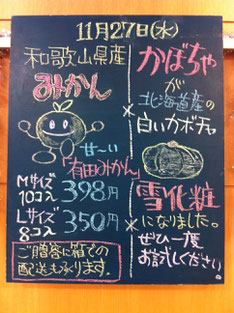 11月27日(水)
和歌山県産
みかん
甘〜い
「有田みかん」
Mサイズ
10コ入 398円
Lサイズ
8コ入 350円
ご贈答に箱での
配送も承ります.
かぼちゃ
が
北海道産の
白いカボチャ
雪化粧
になりました。
ぜひ一度
お試しください。